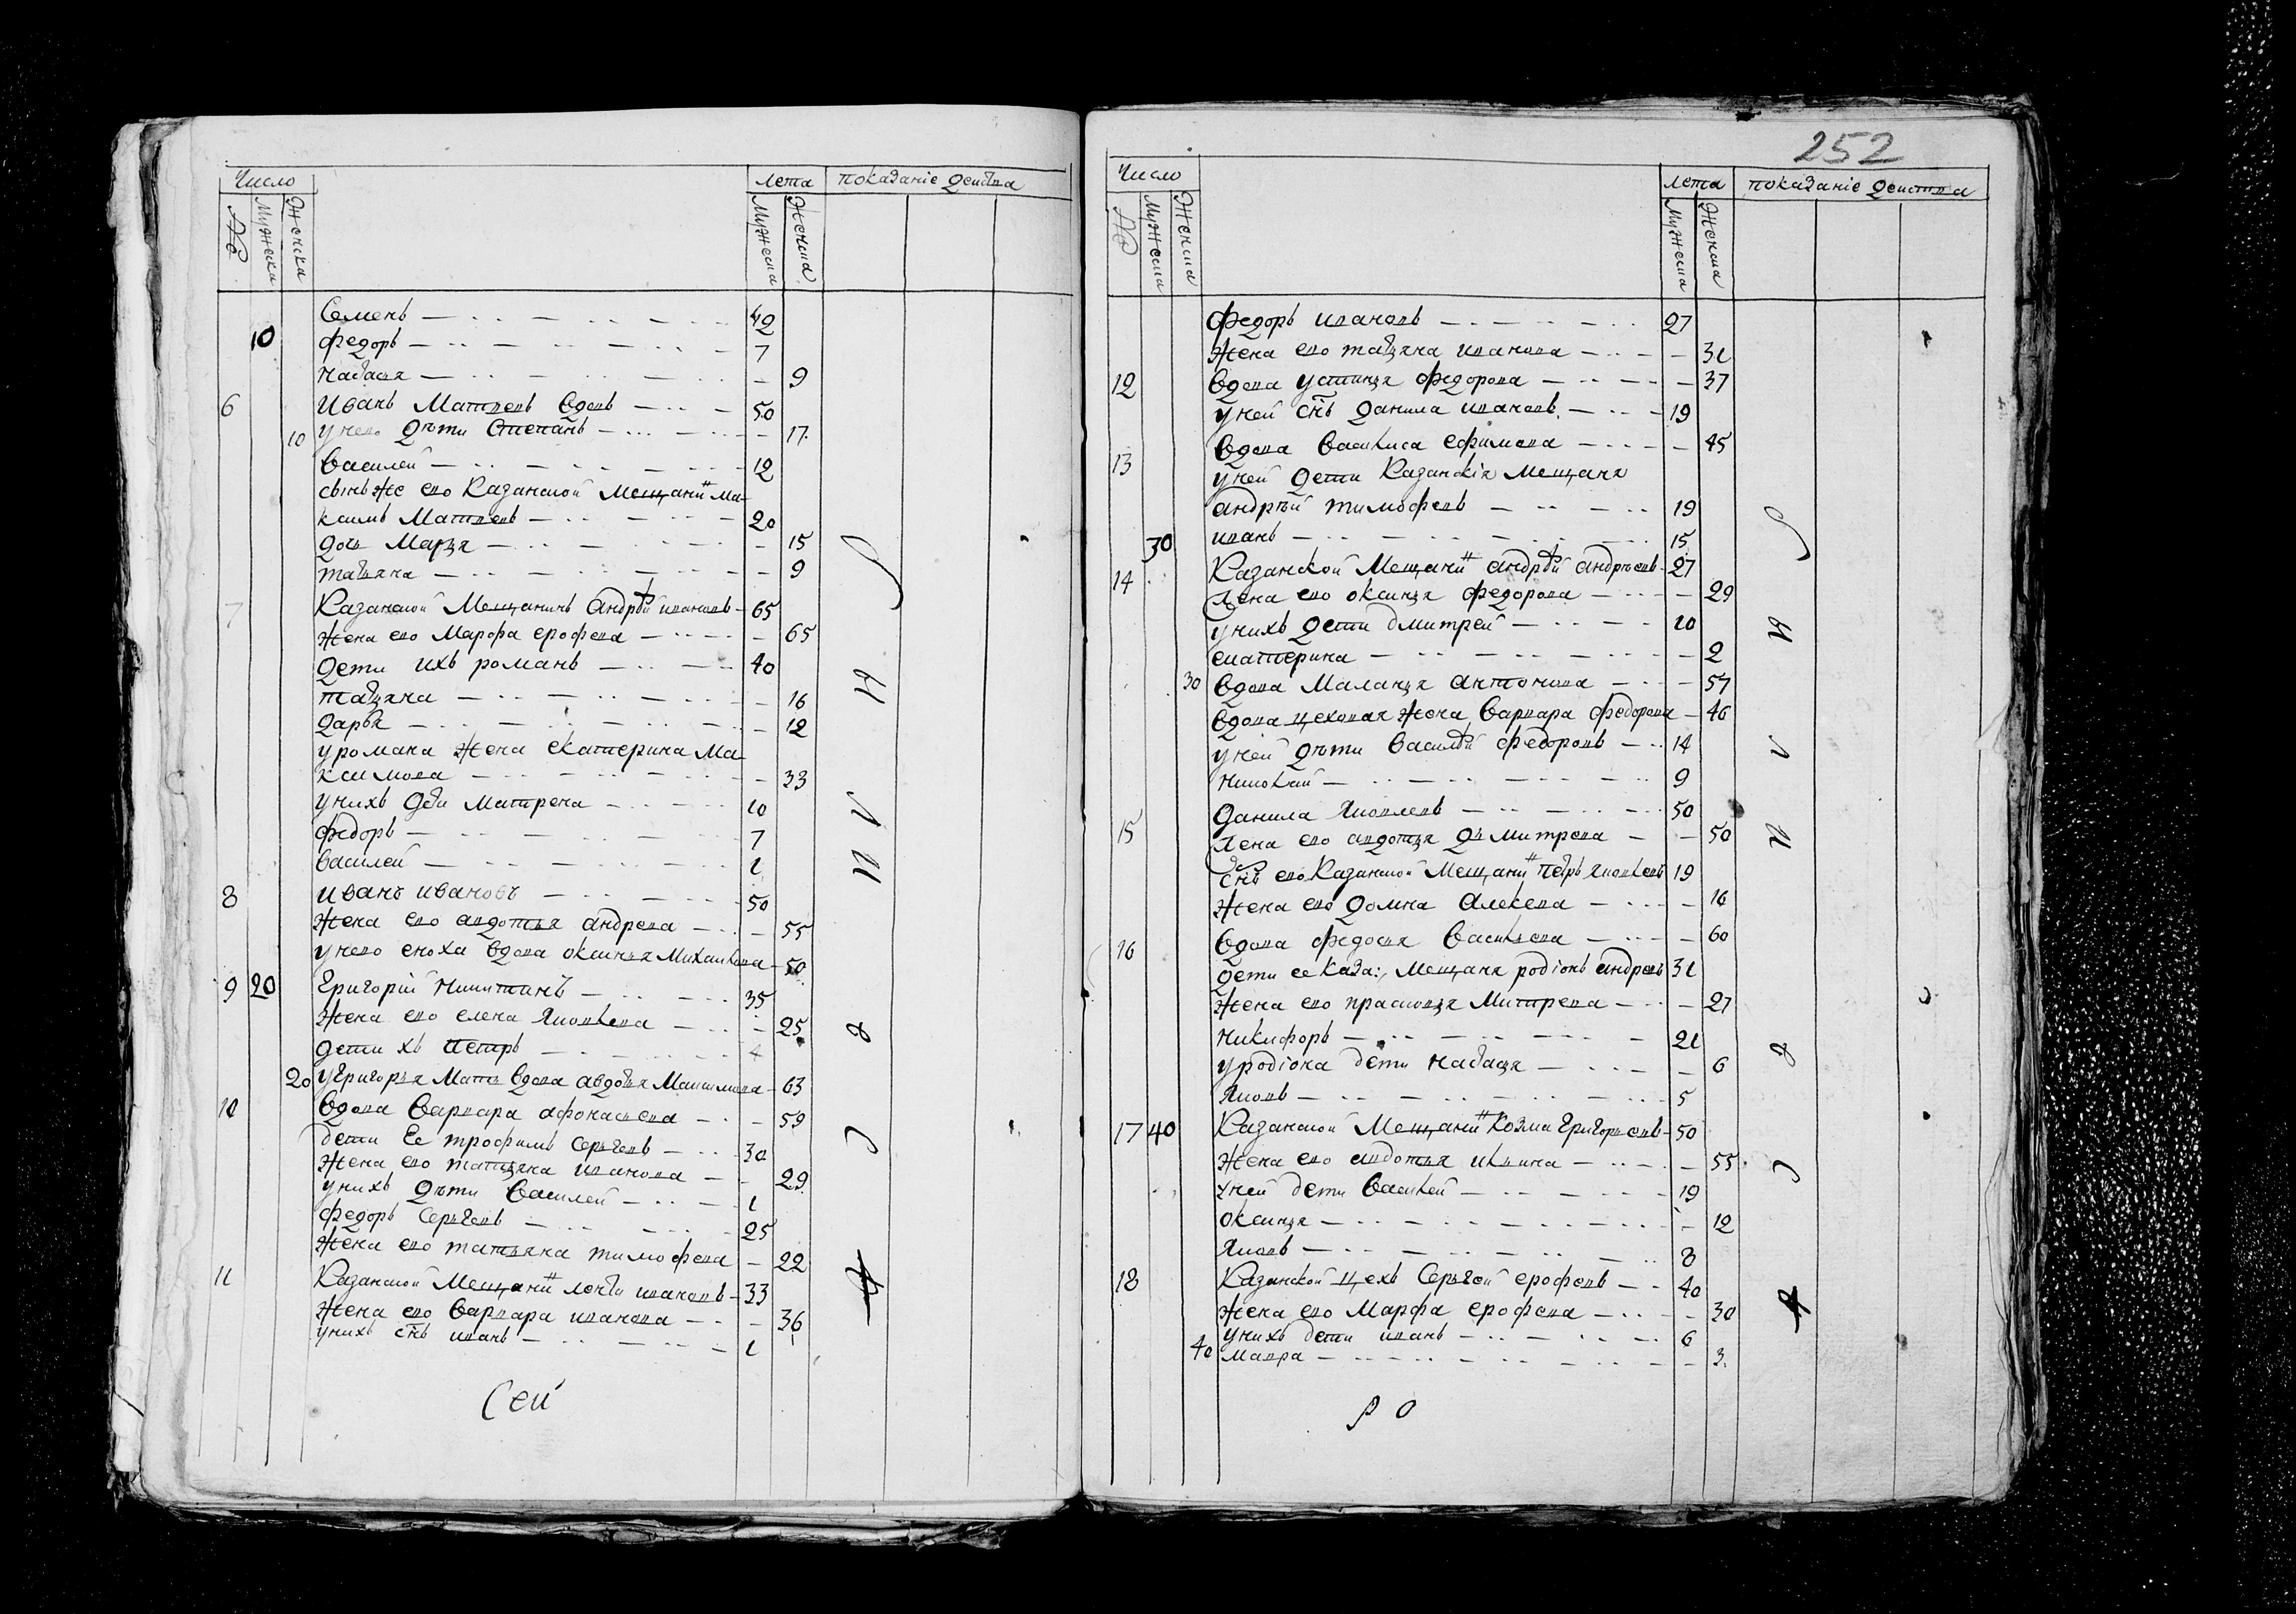 Число
лета
показаніе деиства
№
Мужеска
Женска
Мужеска
Женска
Семенъ 42
10 федоръ 7
настася 9
6 Иванъ Матвеевъ вдовъ 50
10 унево дѣти Степанъ 17
василеи 12
сынъ же ево Казанской Мещанинъ Ма-
ксимъ Матвеевъ 20
дочь Марья 15
татьяна 9
7 Казанской Мещанинъ андрѣй ивановъ 65
жена ево Марфа ерофева 65
дети ихъ романъ 40
татьяна 16
дарья 12
уромана жена екатерина Ма-
ксимова 33
унихъ дѣти Матрена 10
федоръ 7
василеи 1
8 иванъ ивановъ 50
жена ево авдотья андрева 55
унево сноха вдова оксинья Михаилова 50
9 20 Григорій Никитинъ 35
жена ево елена Яковлева 25
дети хъ Петръ 4
20 уГригорья Мать вдова авдотья Максимова 63
10 вдова варвара афонасьева 59
дети Ее трофимъ Сергѣевъ 30
жена ево татьяна иванова 29
унихъ дѣти Василеи 1
федоръ Сергѣевъ 25
жена ево татьяна тимофева 22
11 Казанской Мещанинъ ивановъ 33
жена ево варвара иванова 36
унихъ снъ иванъ 1
Сей
252
Число
лета
показаніе деиства
№
Мужеска
Женска
Мужеска
Женска
федоръ ивановъ 27
жена ево татьяна иванова 31
12 вдова устинья федорова 37
уней снъ данила ивановъ 19
13 вдова василиса ефимова 45
уней дети Казанскія Мещаня
андрѣй тимофевъ 19
30 иванъ 15
14 Казанской Мещанинъ андрѣй андрѣевъ 27
жена ево оксинья федорова 29
унихъ дети дмитреи 10
екатерина 2
30 вдова Маланья антонова 57
вдова цеховая жена варвара федорова 46
уней дѣти василѣй федоровъ 14
николаи 9
15 данила Яковлевъ 50
жена ево авдотья дъмитрева 50
снъ ево Казанской Мещанинъ петръ яковлевъ 19
жена ево домна алексева 16
16 вдова федосья васильева 60
дети ее Каза: Мещаня родіонъ андревъ 31
жена ево прасковья Митрева 27
никифоръ 21
уродіона дети настасья 6
Яковъ 5
17 40 Казанской Мещанинъ Козма Григорьевъ 50
жена ево авдотья ильина 55
уней дети василеи 19
оксинья 12
Яковъ 8
18 Казанской цехъ Сергѣй ерофевъ 40
жена ево Марфа ерофева 30
унихъ дети иванъ 6
40 мавра 3